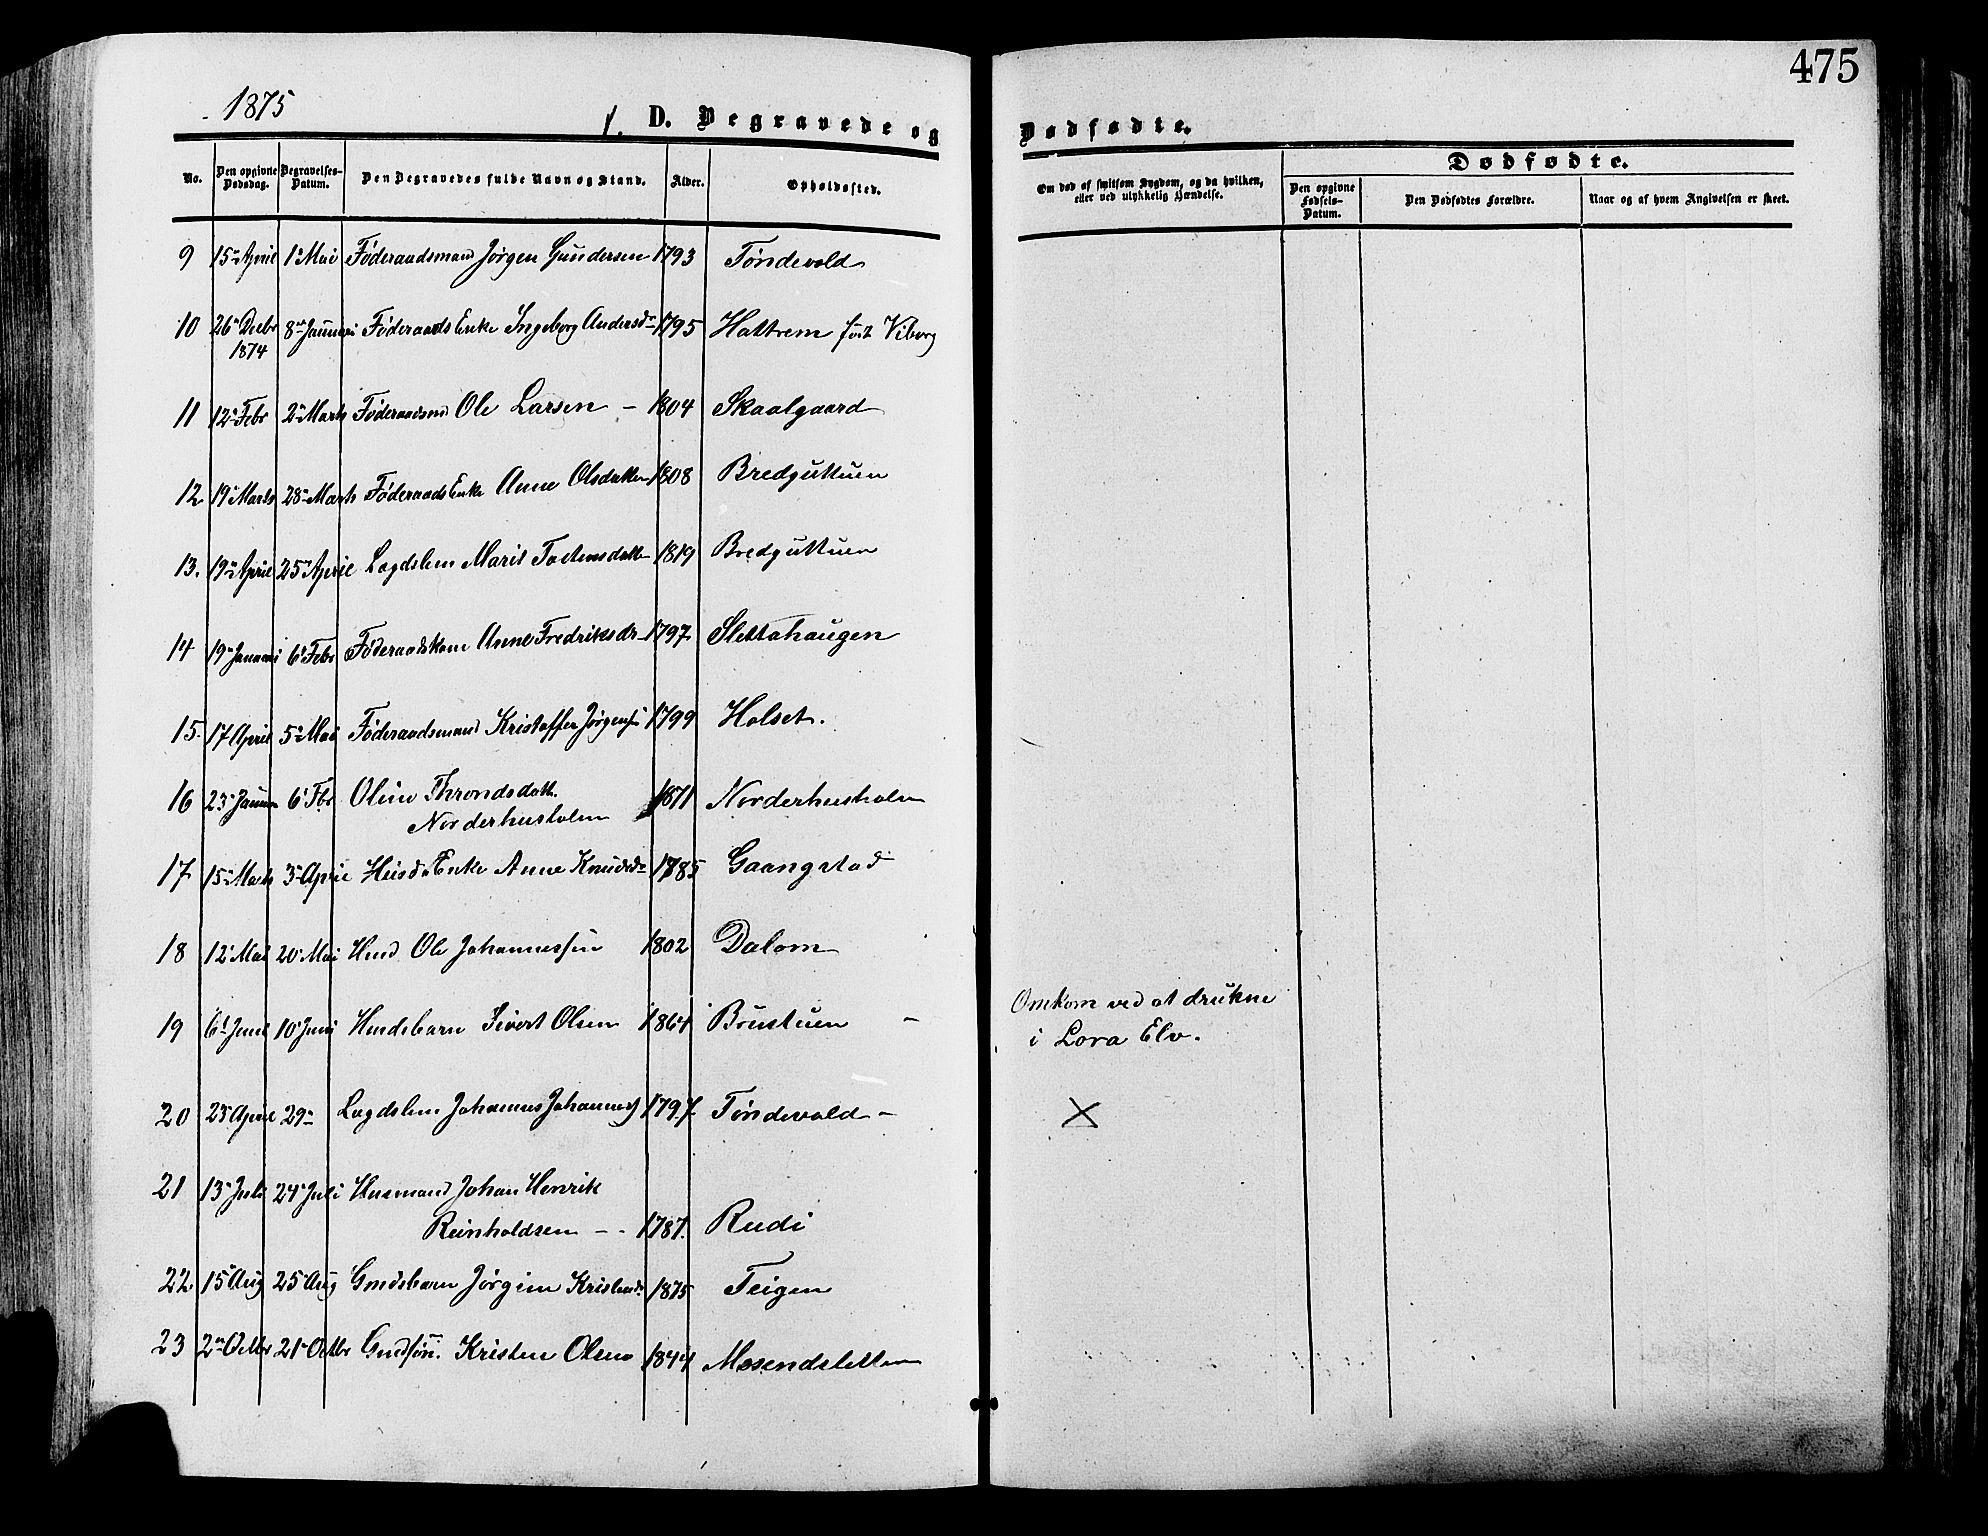 475
1875
1. D. Begravede og Dødfødte.
No. Den opgivne Dødsdag. Begravelses-Datum. Den Begravedes fulde Navn og Stand. Alder. Opholdssted. Om død af smitsom Sygdom, og da hvilken, eller ved ulykkelig Hændelse. Dødfødte. Den opgivne Fødsels-Datum. Den Dødfødtes Forældre. Naar og af hvem Angivelsen er skeet.
9 15de April 1ste Mai Føderaadsmand Jørgen Gundersen 1793 Tøndevold
10 26de Decbr 1874 8de Januari Føderaads Enke Ingeborg Andersdr 1795 Hattrem født Viborg
11 12te Febr 2den Marts Føderaadsmd Ole Larsen - 1804 Skaalgaard
12. 19de Marts 28de Marts Føderaads Enke Anne Olsdatter 1808 Bredguttuen
13. 19de April 25de April Lægdslem Marit Tostensdatter 1819 Bredguttuen
14 19de Januari 6te Febr Føderaadskone Anne Fredriksdr 1797 Slettahaugen
15. 17 April 5te Mai Føderaadsmand Kristoffer Jørgens 1799 Holset.
16 23de Januar 6te Fbr Oline Throndsdatt. 1871 Norderhusholm
Norderhusholm
17 15de Marts 3de April Husds Enke Anne Knudsdr 1785 Gaangstad
18 12te Mai 20de Mai Husd Ole Johannessen 1802 Dalom
19 6te Juni 10de Juni Husdsbarn Sivert Olsen 1864 Brustuen - Omkom ved at drukne
i Lora Elv.
20 23de April 29de Lægdslem Johannes Johannes 1797 Tøndevold - X
21 13de Juli 24de Juli Husmand Johan Henrik
Reinholdsen - - 1787. Rudi
22 15de Aug 25 Aug Gmdsbarn Jørgine Kristensd. 1875 Teigen
23 2den Octbr 21de Octbr Gmdsøn. Kristen Olsen 1844 Mosendsletten